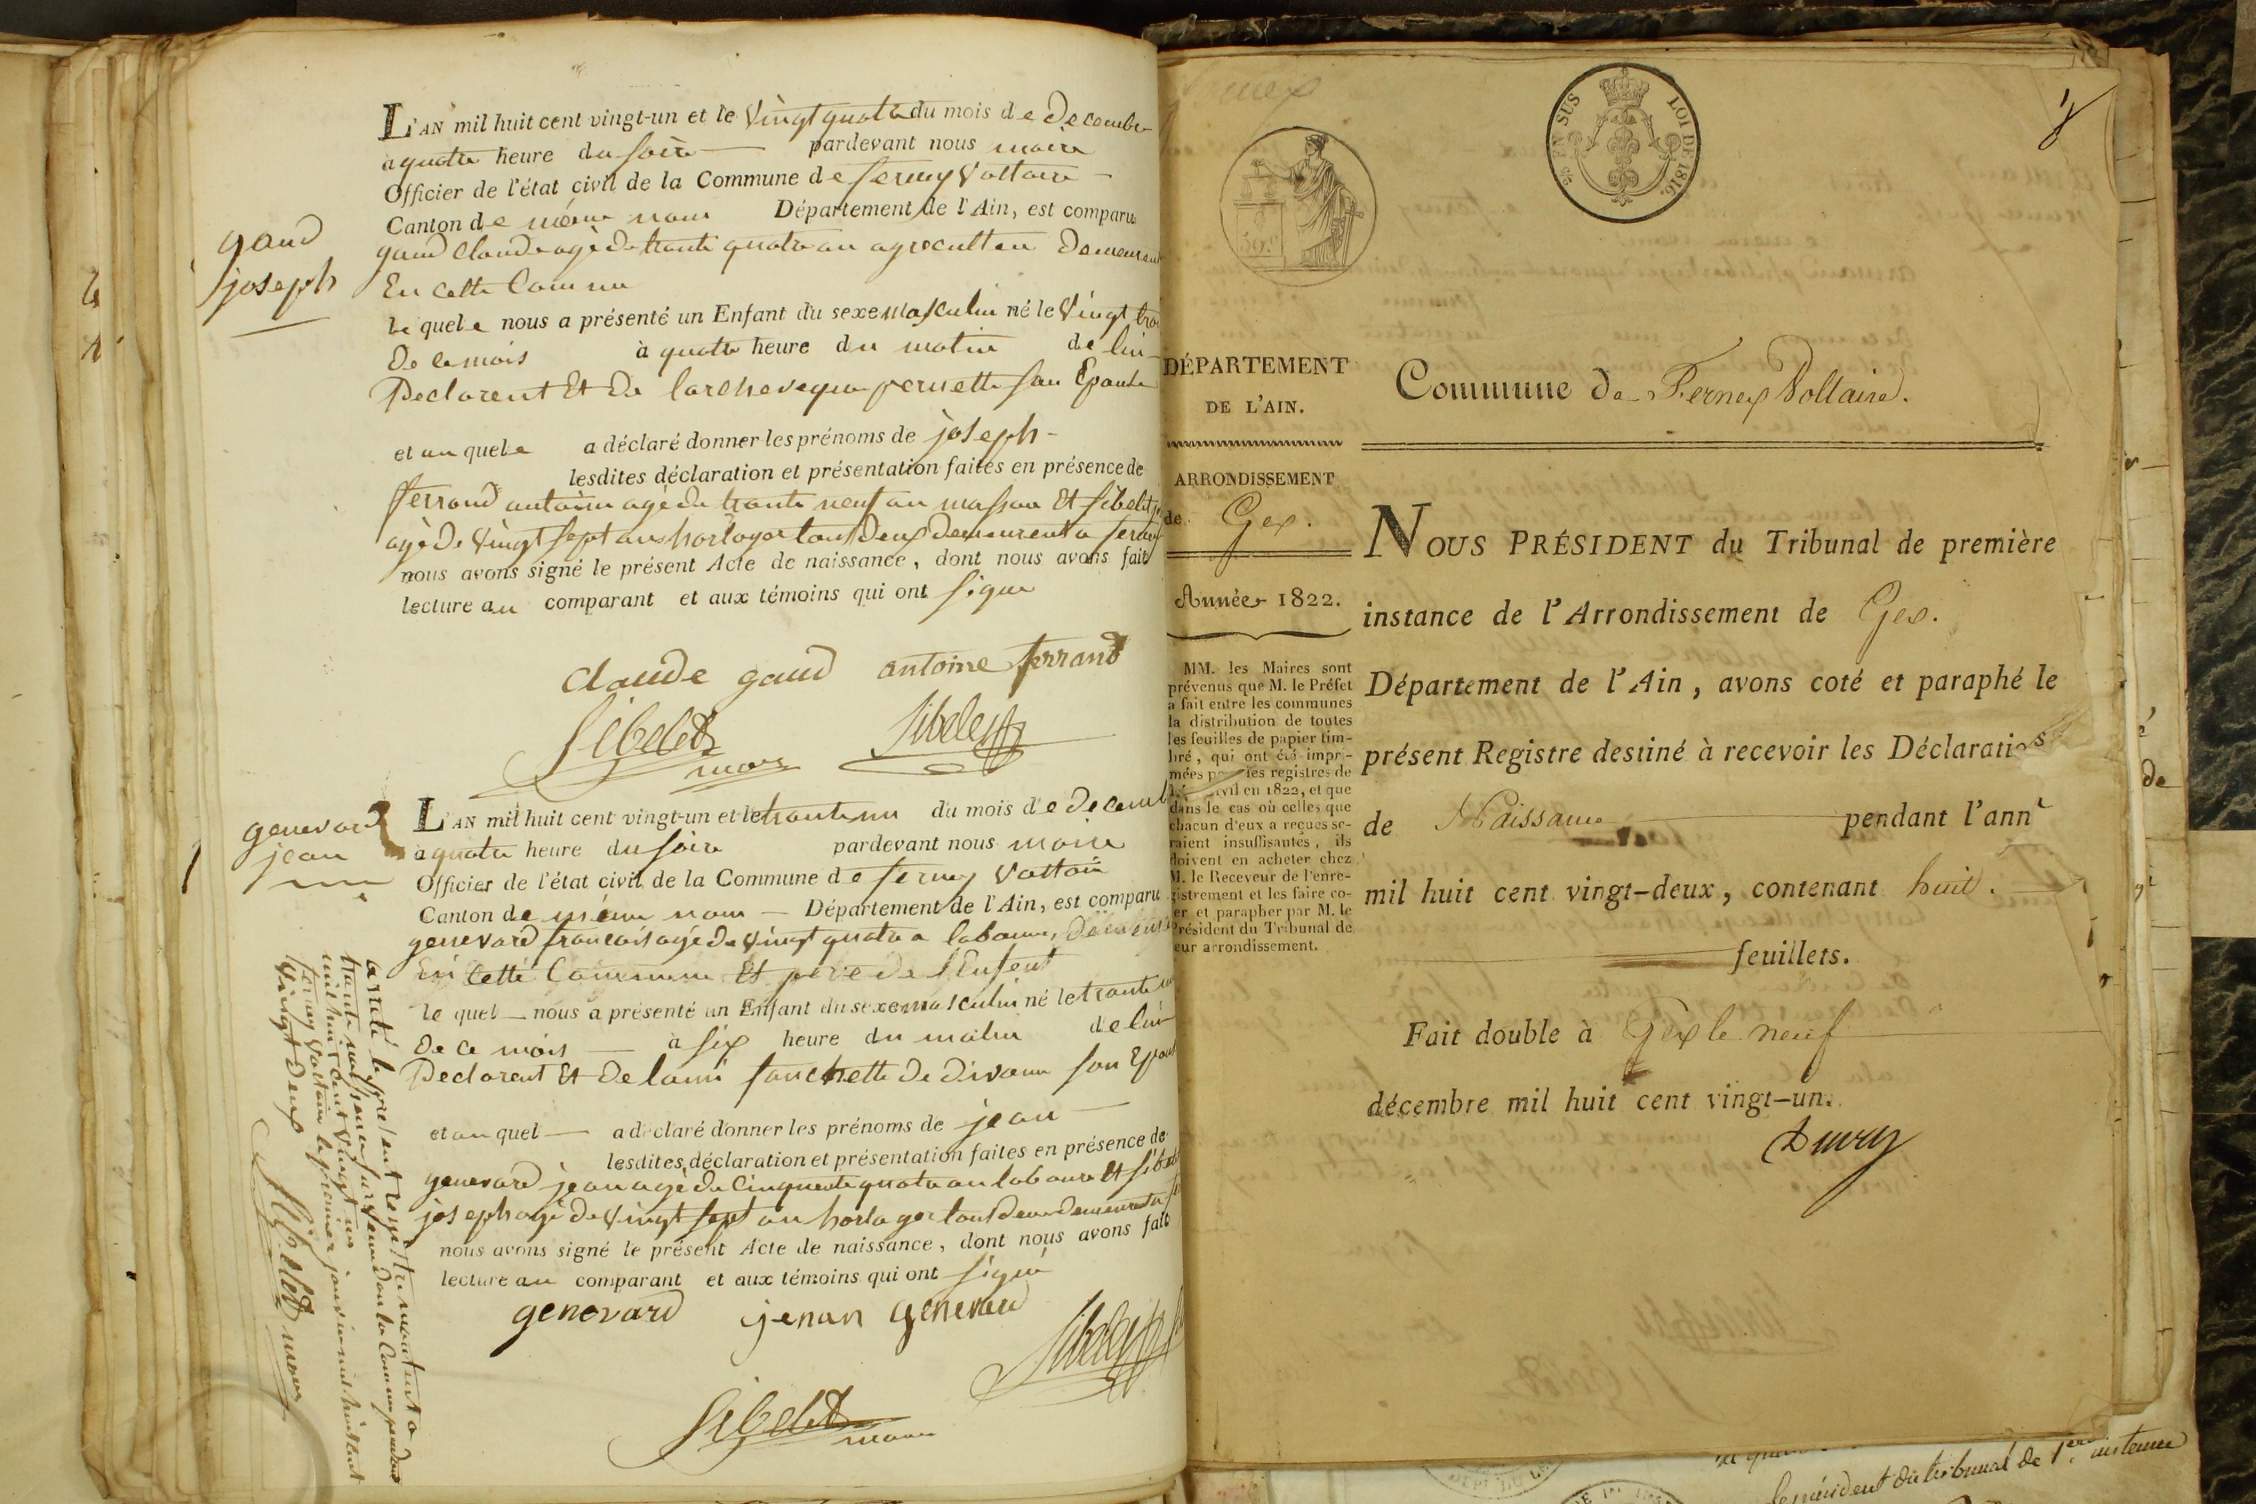 L'AN mil huit cent vingt-un et le Vingt quatre du mois de Decembre
a quatre heure du soire pardevant nous maire
Officier de l'état civil de la Commune de ferney Voltaire
Canton de méme nom Département de l'Ain, est comparu
gaud
joseph
gaud Claude agé de trante quatre an agreculteu Demeurant
En cette Commune
le quele nous a présenté un Enfant du sexe masculin né le Vingt troi
De ce mois à quatre heure du matin de lui
Declarent Et De Larcheveque pernette son Epouse
et au quele a déclaré donner les prénoms de joseph
lesdites déclaration et présentation faites en présence de
ferrand antoine agé de trante neuf an masson Et sibelet
agé de Vingt sept ans horloger tous deux demeurent a ferney
nous avons signé le présent Acte de naissance, dont nous avons fait
lecture au comparant et aux témoins qui ont signé
Claude gaud antoine ferrand
Sibelet Sibelet
maire
genevard
jean
L'AN mil huit cent vingt-un et le trante un du mois de Decembre
a quatre heure du soire pardevant nous maire
Officier de l'état civil de la Commune de ferney Voltaire
Canton de méme nom Département de l'Ain, est comparu
genevard francois agé de Vingt quatre a laboureur, Demeurant
En Cette Commune Et pere de l'Enfent
le quel nous a présenté un Enfant du sexe masculin né le trante un
De ce mois à six heure du matin de lui
Declarent Et De Lami fanchette de divonne son Epouse
et au quel a déclaré donner les prénoms de jean
lesdites déclaration et présentation faites en présence de
genevard jean agé de Cinquente quatre an laboureur Et sibelet
joseph agé de Vingt sept an horloger tous deux demeurent a
nous avons signé le présent Acte de naissance, dont nous avons fait
lecture au comparant et aux témoins qui ont signé
genevard jenan genevard
Sibelet
Sibelet
maire
arreté le present registre montent a
trante naissence survenu dans la Commune pendent
mil huit Cent Vingt un
ferney Voltaire le premier janvier mil huit Cent
Vingt Deux
Sibelet maire
EN SUS
LOI DE 1816.
8
DÉPARTEMENT
DE L'AIN.
ARRONDISSEMENT
de Gex.
Année 1822.
MM. les Maires sont
prévenus que M. le Préfet
a fait entre les communes
la distribution de toutes
les feuilles de papier tim-
bré, qui ont été impri-
mées pour les registres de
civil en 1822, et que
dans le cas où celles que
chacun d'eux a reçues se-
raient insuffisantes, ils
doivent en acheter chez
M. le Receveur de l'enre-
gistrement et les faire co-
ter et parapher par M. le
Président du Tribunal de
leur arrondissement.
Commune de Ferney Voltaire.
NOUS PRÉSIDENT du Tribunal de première
instance de l'Arrondissement de Gex.
Département de l'Ain, avons coté et paraphé le
présent Registre destiné à recevoir les Déclarations
de Naissance pendant l'ann
mil huit cent vingt-deux, contenant huit.
feuillets.
Fait double à Gex le neuf
décembre mil huit cent vingt-un.
de
président du tribunal de 1ere instance